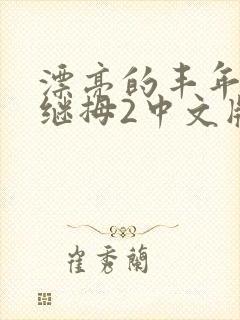 漂亮的丰年
继拇2中文版
崔秀蘭